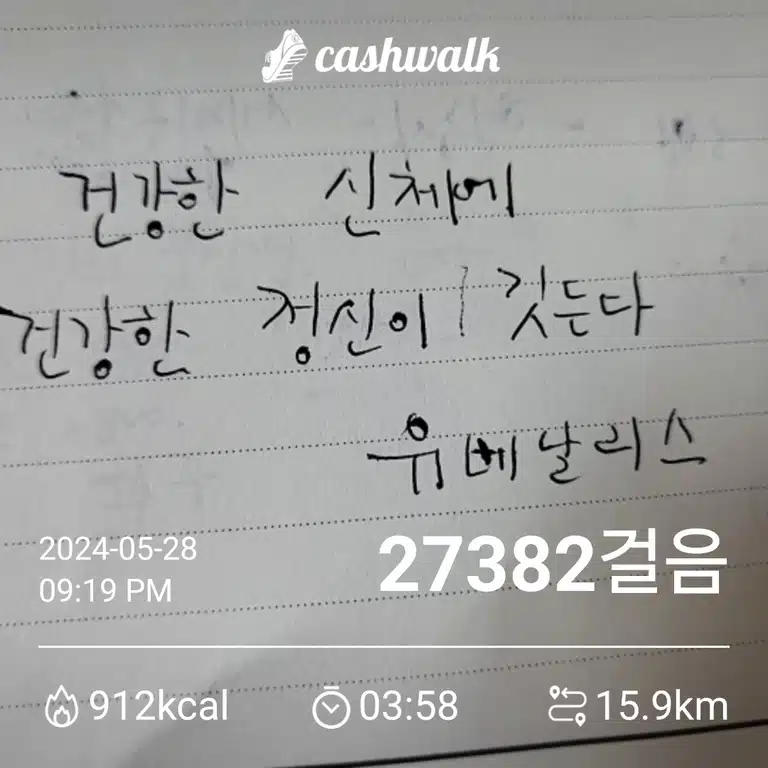 cashwalk
건강한 신체에
건강한 정신이 깃든다
유베날리스
2024-05-28
09:19 PM
27382걸음
912kcal
03:58
15.9km